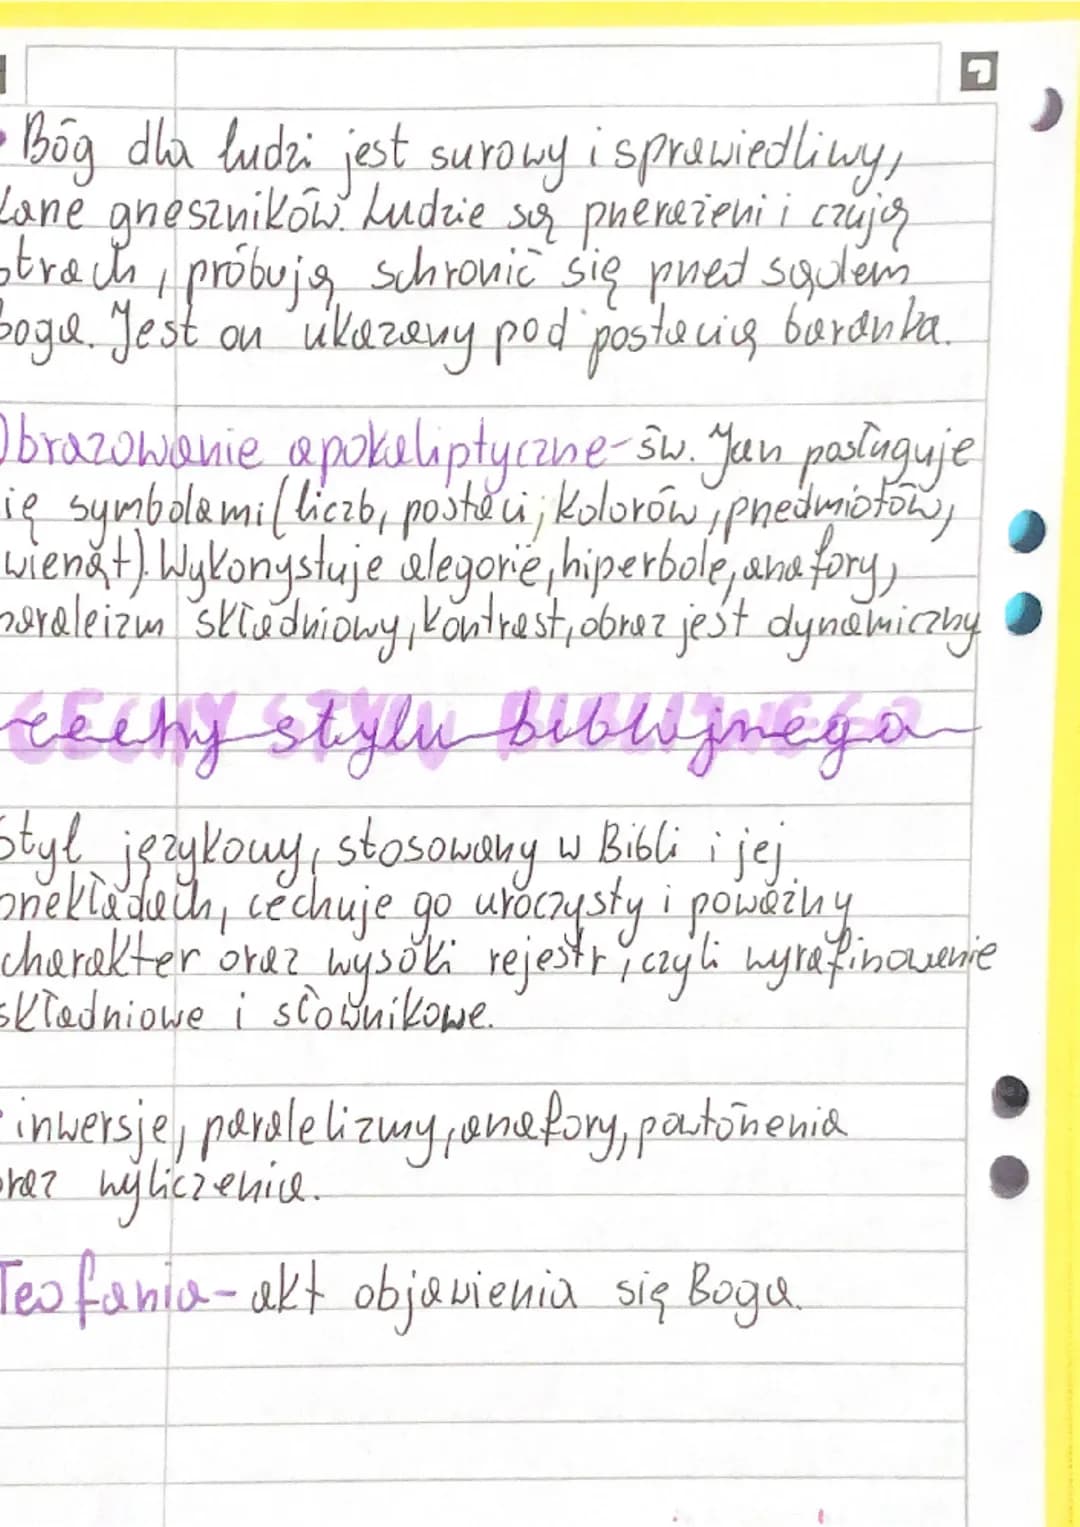 Bóg dla ludzi jest surowy i sprawiedliwy,
karze grzeszników. Ludzie są przerażeni i czują
strach, próbują schronić się przed sądem
Boga. Jest on ukazany pod postacią baranka.
Obrazowanie apokaliptyczne-św. Jan posługuje
się symbolami (liczb, postaci, kolorów, przedmiotów,
zwierząt). Wykorzystuje alegorie, hiperbole, anafory,
paraleizm składniowy, kontrast, obraz jest dynamiczny
cechy stylu biblijnego
Styl językowy, stosowany w Bibli i jej
przekładach, cechuje go uroczysty i poważny
charakter oraz wysoki rejestr, czyli wyrafinowanie
składniowe i słownikowe.
inwersje, paralelizmy, anafory, powtórzenia
oraz wyliczenia.
Teofania-akt objawienia się Boga.